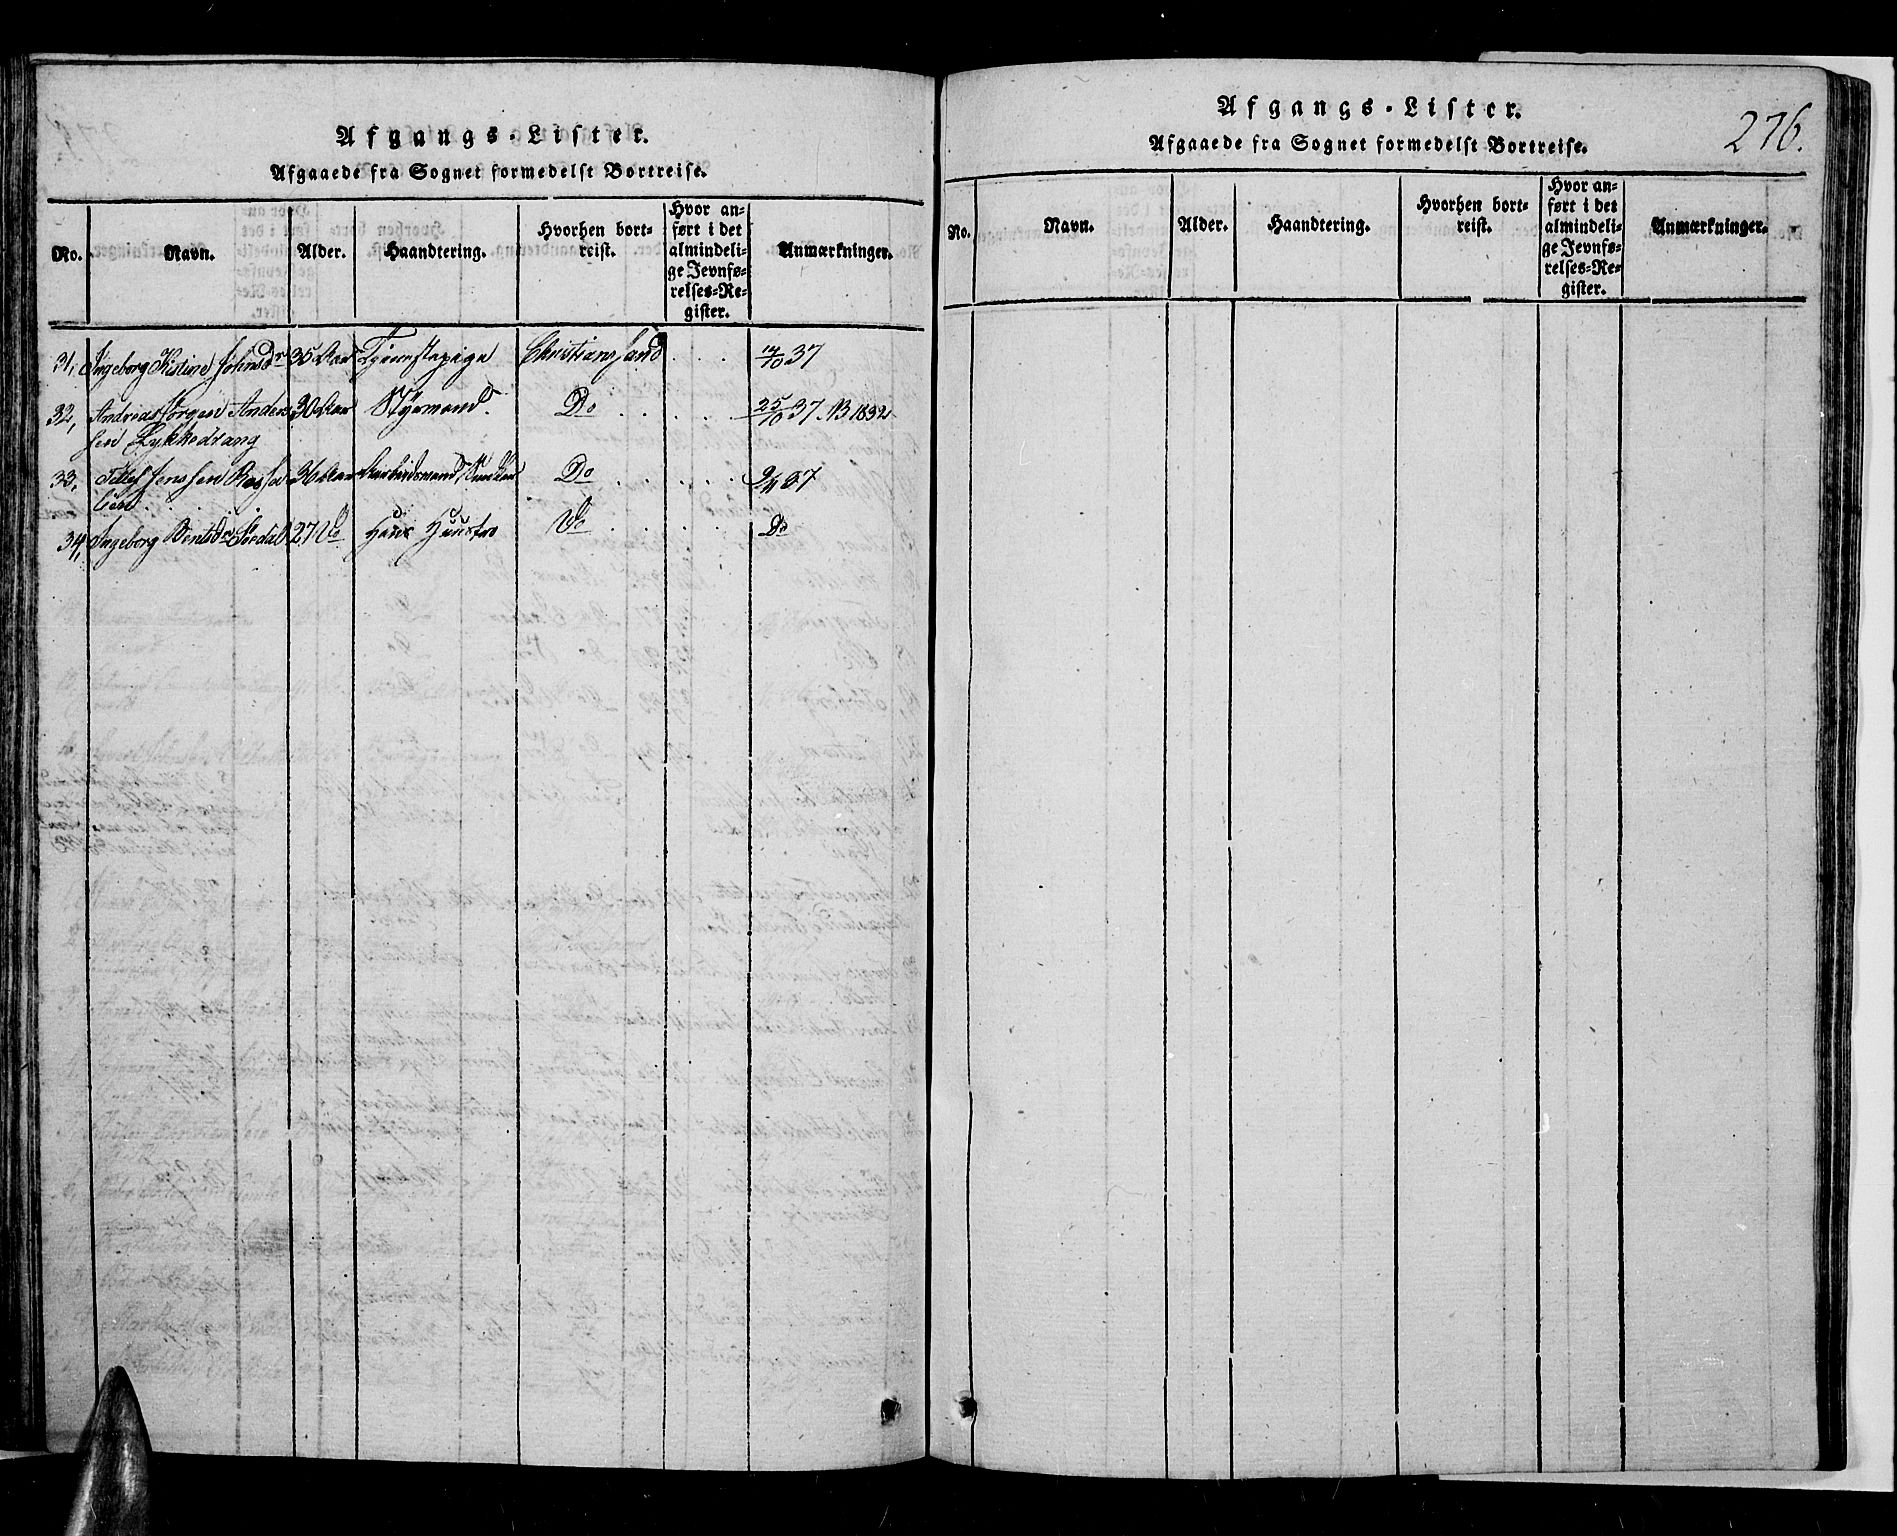 Afgangs-Lister.
Afgaaede fra Sognet formedelst Bortreise.
No. Navn. Alder. Haandtering. Hvorhen bort-reist. Hvor an-ført i det almindeli-ge Jevnfø-relses-Re-gister. Anmærkninger.
31, Ingeborg Kistine Johnsdr 35 Aar Tjenestepige Christiansand . . . 14/10 37
32, Andreas Jørgen Ander- 30 Aar Styrmand. Do . . . . . 25/10 37. B 1832
sen Lykkedrang
33, Tellef Jensen 36 Aar Do . . . . . . 2/11 37
34, Ingeborg Bentsdr 27 Do Hans Huustro Do . . . . Do
Afgangs-Lister.
276.
Afgaaede fra Sognet formedelst Bortreise.
No. Navn. Alder. Haandtering. Hvorhen bort-reist. Hvor an-ført i det almindeli-ge Jevnfø-relses-Re-gister. Anmærkninger.